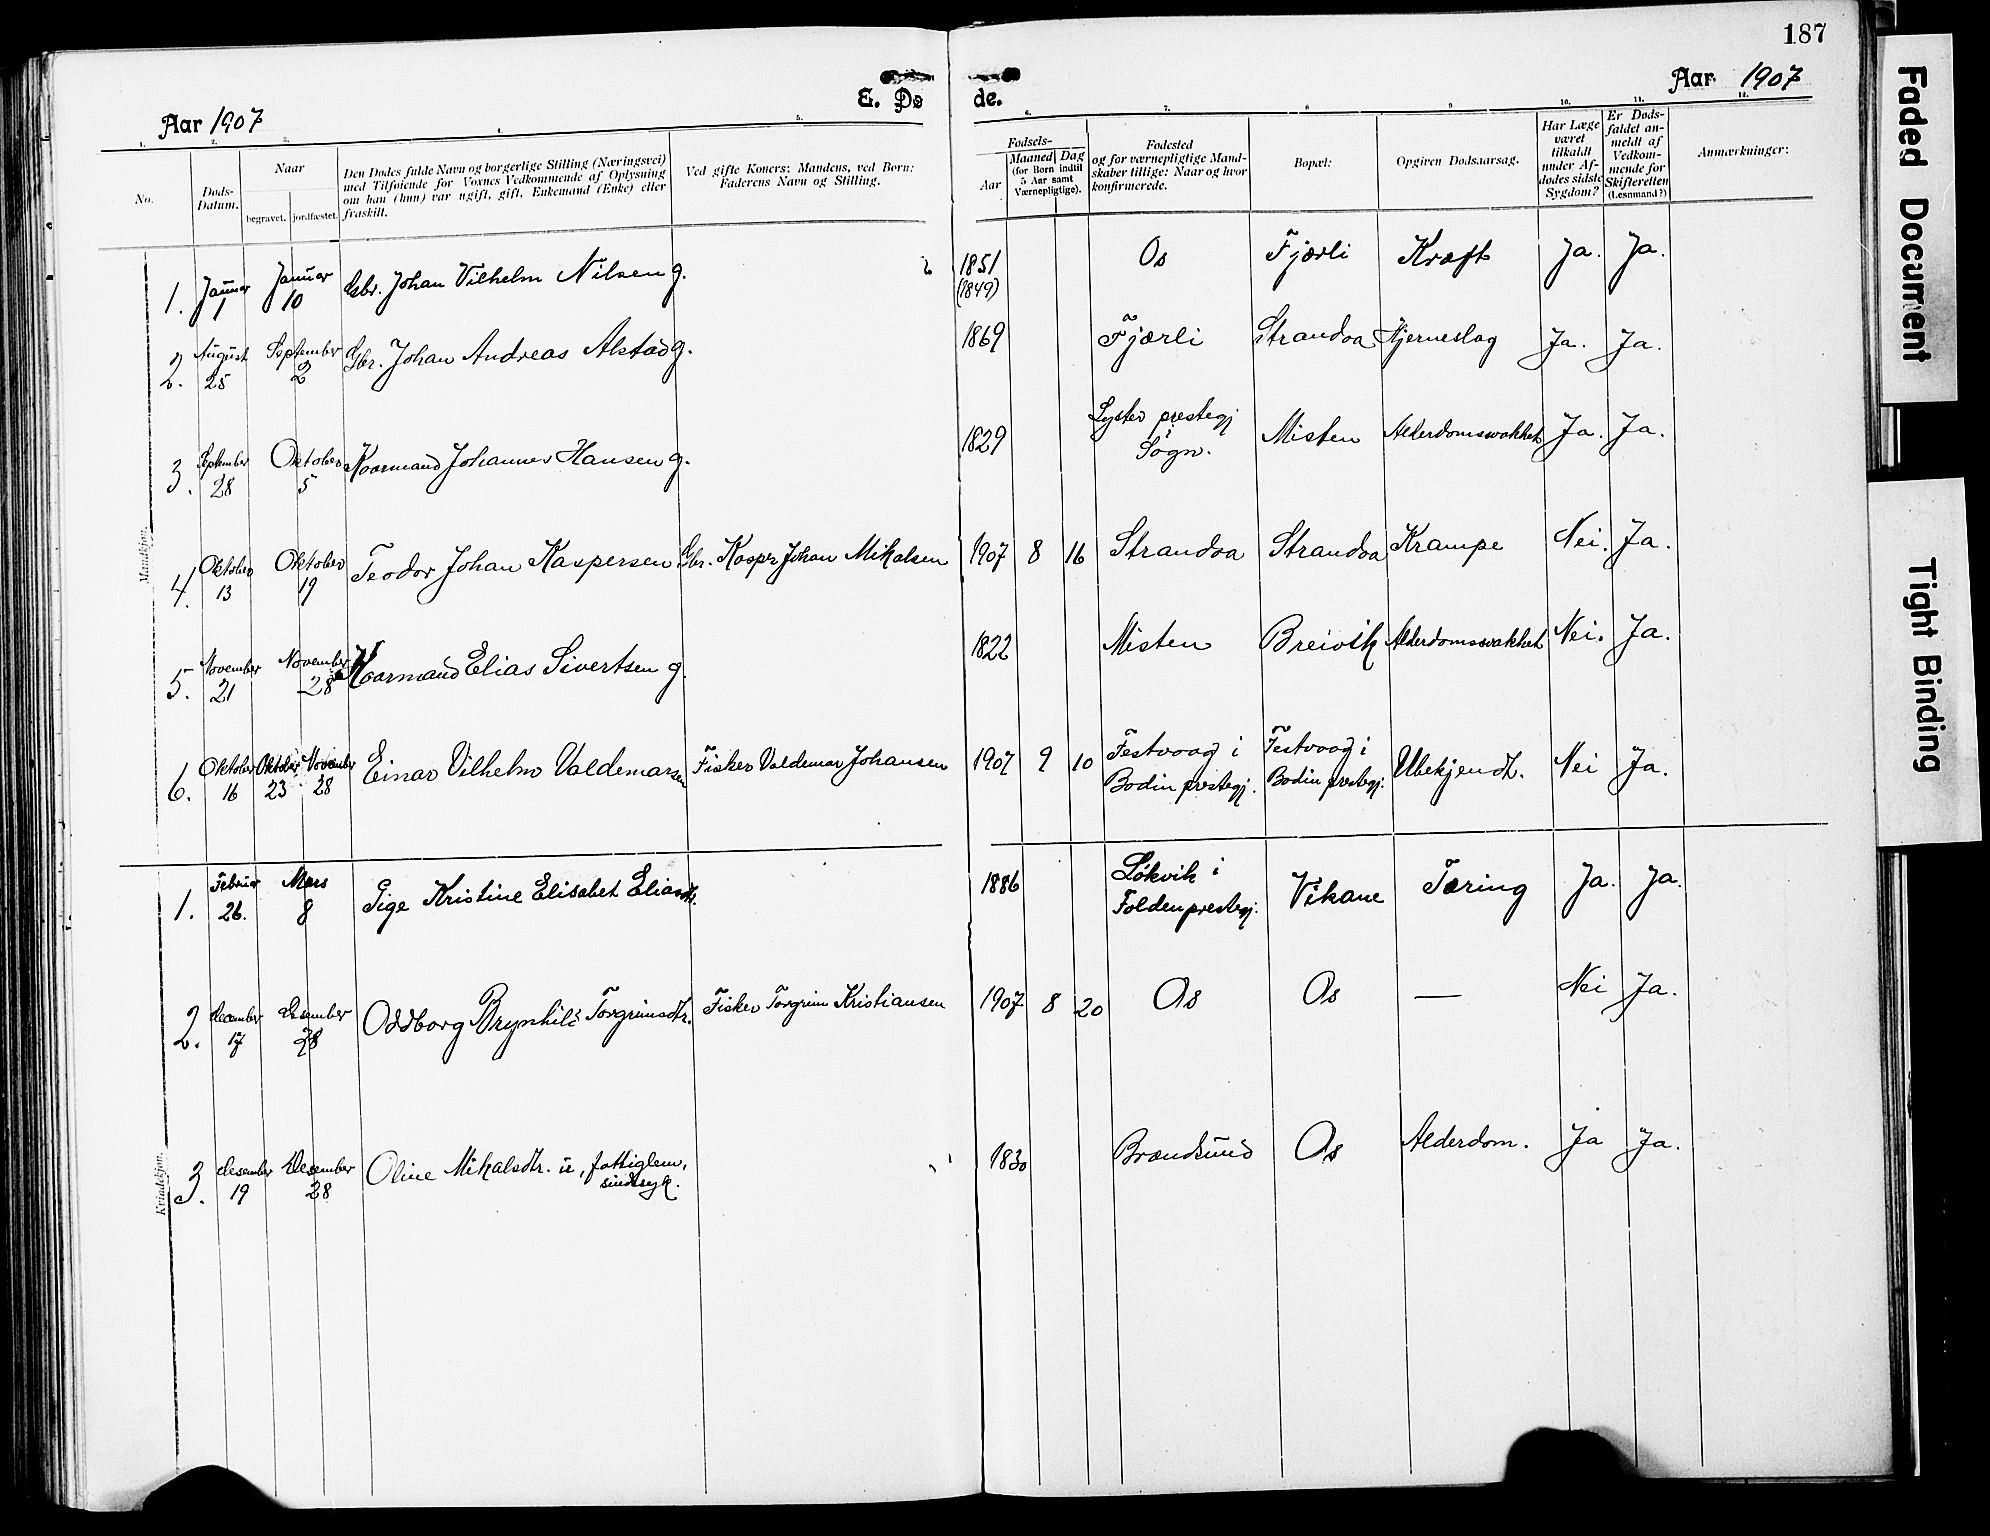 187
Aar 1907
E. Dø de.
Aar 1907
1. 2. 3. 4. 5. 6. 7. 8. 9. 10. 11. 12.
No.
Døds-
Datum.
Naar
begravet. jordfæstet.
Den Dødes fulde Navn og borgerlige Stilling (Næringsvei)
med Tilføiende for Voxnes Vedkommende af Oplysning
om han (hun) var ugift, gift, Enkemand (Enke) eller
fraskilt.
Ved gifte Koners: Mandens, ved Børn:
Faderens Navn og Stilling.
Fødsels-
Aar
Maaned Dag
(for Børn indtil
5 Aar samt
Værnepligtige).
Fødested
og for værnepligtige Mand-
skaber tillige: Naar og hvor
konfirmerede.
Bopæl:
Opgiven Dødsaarsag.
Har Læge
været
tilkaldt
under Af-
dødes sidste
Sygdom?
Er Døds-
faldet an-
meldt af
Vedkom-
mende for
Skifteretten
(Lesnmand?)
Anmærkninger:
Mandkjøn.
1. Januar 1 Januar 10 Gbr. Johan Vilhelm Nilsen g. 1851 (1849) Os Fjærli Kræft Ja. Ja.
2. August 25 September 2 Gbr. Johan Andreas Alstad g. 1869 Fjærli Strandaa Hjerneslag Ja. Ja.
3. September 28 Oktober 5 Kaarmand Johannes Hansen g. 1829 Lyster prestegj i Sogn. Misten Alderdomssvakhet Ja. Ja.
4. Oktober 13 Oktober 19 Teodor Johan Kaspersen Gbr. Kaspr Johan Mikalsen 1907 8 16 Strandaa Strandaa Krampe Nei. Ja.
5. November 21 November 28 Kaarmand Elias Sivertsen g. 1822 Misten Breivik Alderdomssvakhet Nei. Ja.
6. Oktober 16 Oktober 23 November 28 Einar Vilhelm Valdemarsen Fisker Valdemar Johansen 1907 9 10 Festvaag i Bodin prestegj. Festvaag i Bodin prestegj. Ubekjendt. Nei Ja.
Kvindekjøn.
1. Februar 26. Mars 8 Pige Kristine Elisabet Eliasdtr. 1886 Løkvik i Folden prestegj. Vikane Tæring Ja. Ja.
2. december 17 Desember 28 Oddborg Brynhild Torgrimsdtr. Fisker Torgrim Kristiansen 1907 8 20 Os Os — Nei Ja.
3. desember 19 Desember 28 Oline Mikalsdtr. u., fattiglem, sindssyk. 1830 Brændsund Os Alderdom. Ja Ja.
Faded Document
Tight Binding